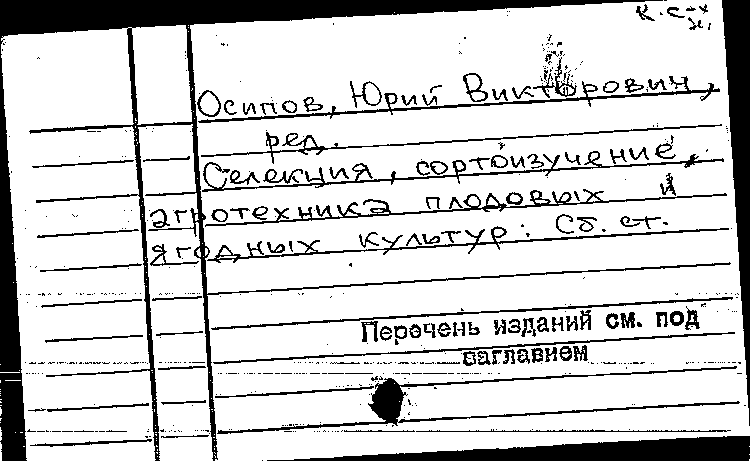 К. с-х
Осипов, Юрий Викторович,
ред.
Селекция, сортоизучение,
агротехника плодовых и
ягодных культур: Сб. ст.
Перечень изданий см. под
заглавием